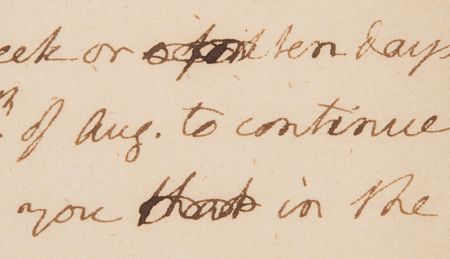 eek or ten days
of Aug. to continue
you in the